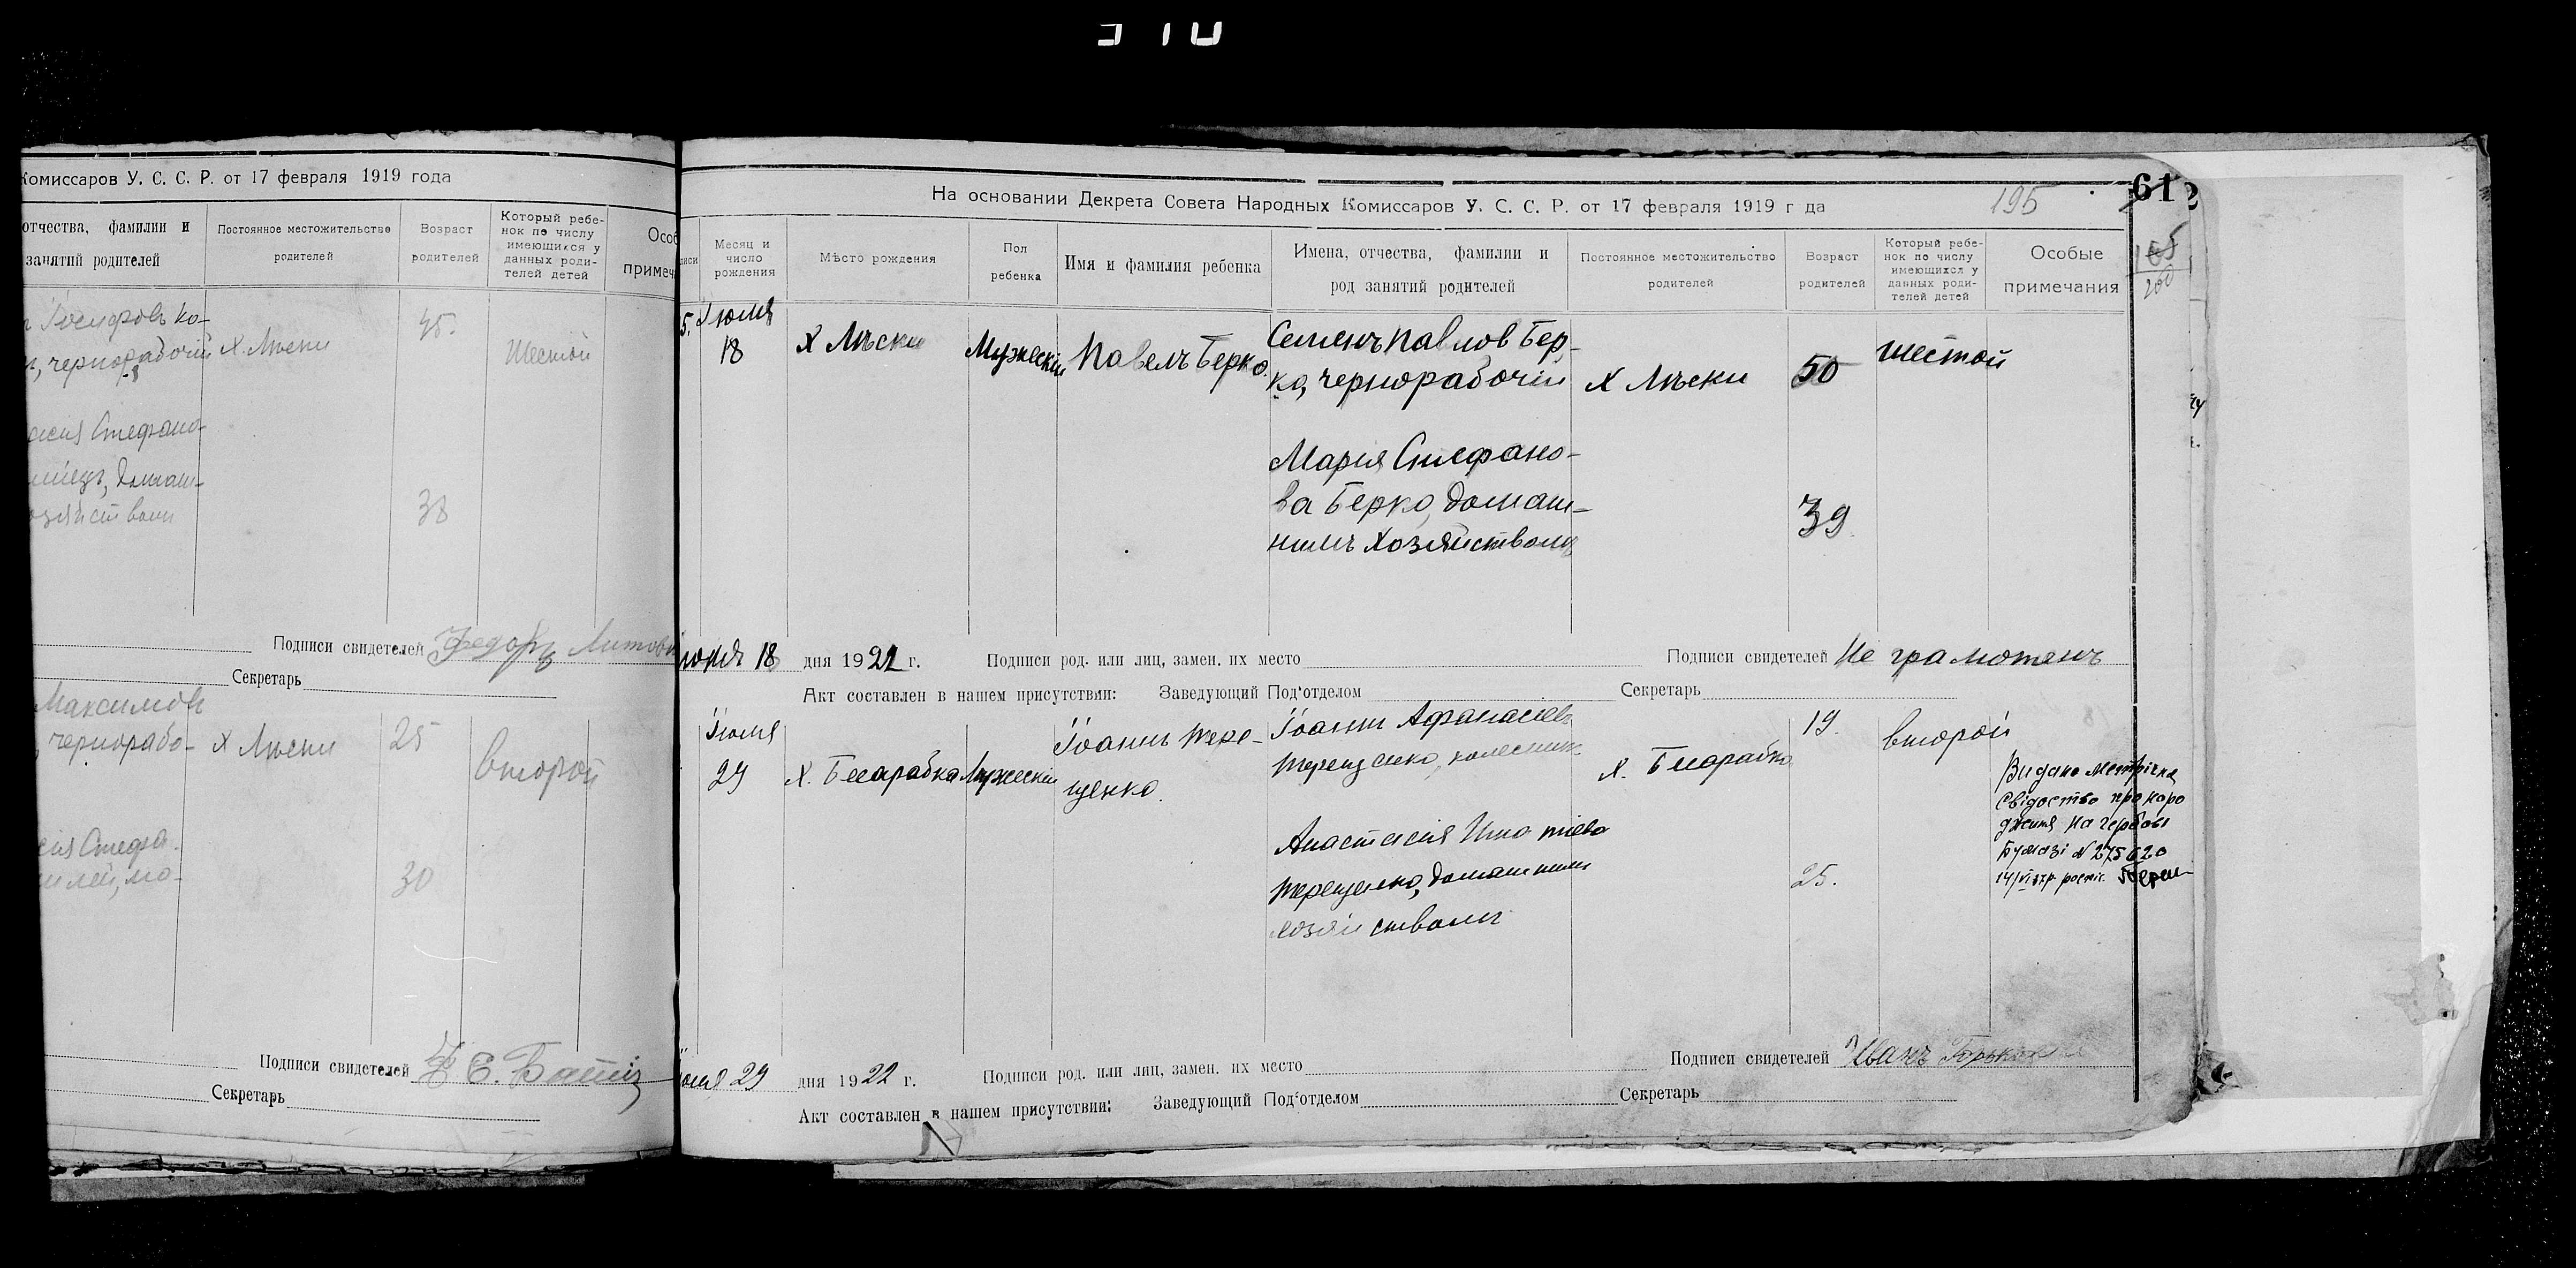 310
Комиссаров У. С. С. Р. от 17 февраля 1919 года
отчества, фамилии и
занятий родителей
Постоянное местожительство
родителей
Возраст
родителей
Который ребе-
нок по числу
имеющихся у
данных роди-
телей детей
Особ
примеч
Іосифовъ Ко-
чернорабочій
Х. Лѣски
45.
Шестой
Стефано-
домаш-
озяйствомъ
38
Подписи свидетелей Федоръ Литов
Секретарь
Максимовъ
, чернорабо-
х Лѣски
25
второй
Стефа-
30
Подписи свидетелей
Секретарь
На основании Декрета Совета Народных Комиссаров У. С. С. Р. от 17 февраля 1919 г да
195
612
Месяц и
число
рождения
Мѣсто рождения
Пол
ребенка
Имя и фамилия ребенка
Имена, отчества, фамилии и
род занятий родителей
Постоянное местожительство
родителей
Возраст
родителей
Который ребе-
нок по числу
имеющихся у
данных роди-
телей детей
Особые
примечания
5. Іюля
18
Х Лѣски
Мужескій
Павелъ Берко.
Семенъ Павлов Бер-
ко, чернорабочій
х Лѣски
50
шестой
Марія Стефано-
ва Берко, домаш-
нимъ хозяйствомъ
39
18 дня 1922 г.
Подписи род. или лиц, замен. их место
Подписи свидетелей Не грамотенъ
Акт составлен в нашем присутствии:
Заведующий Под'отделом
Секретарь
Іюля
29
х. Бесарабка
Мужескій
Іоаннъ Тере-
щенко.
Іоаннъ Афанасіевъ
Терещенко,
х. Бесарабка
19.
второй
Анастасія Игнатіева
Терещенко, домашнимъ
хозяйствомъ
25.
Видано Метрічне
Свідоство про наро
дження на гербові
Бумазі N 275620
29 дня 1922 г.
Подписи род. или лиц, замен. их место
Подписи свидетелей Иванъ
Акт составлен в нашем присутствии:
Заведующий Под'отделом
Секретарь